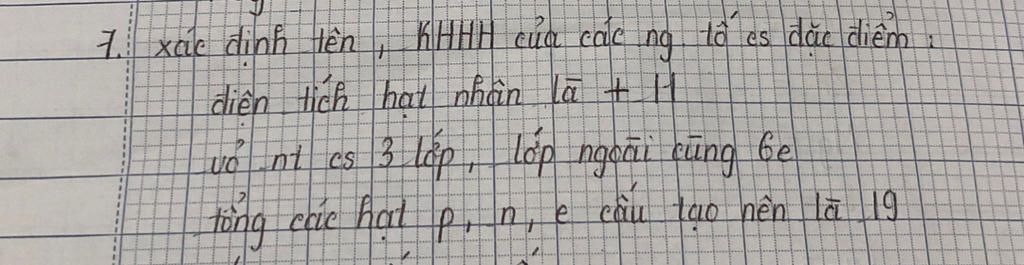 7. xác định tên, KHHH của các ng tố cs đặc điểm:
điện tích hạt nhân là + 11
vỏ nt cs 3 lớp, lớp ngoài cùng 6e
tổng các hạt p, n, e cấu tạo nên là 19